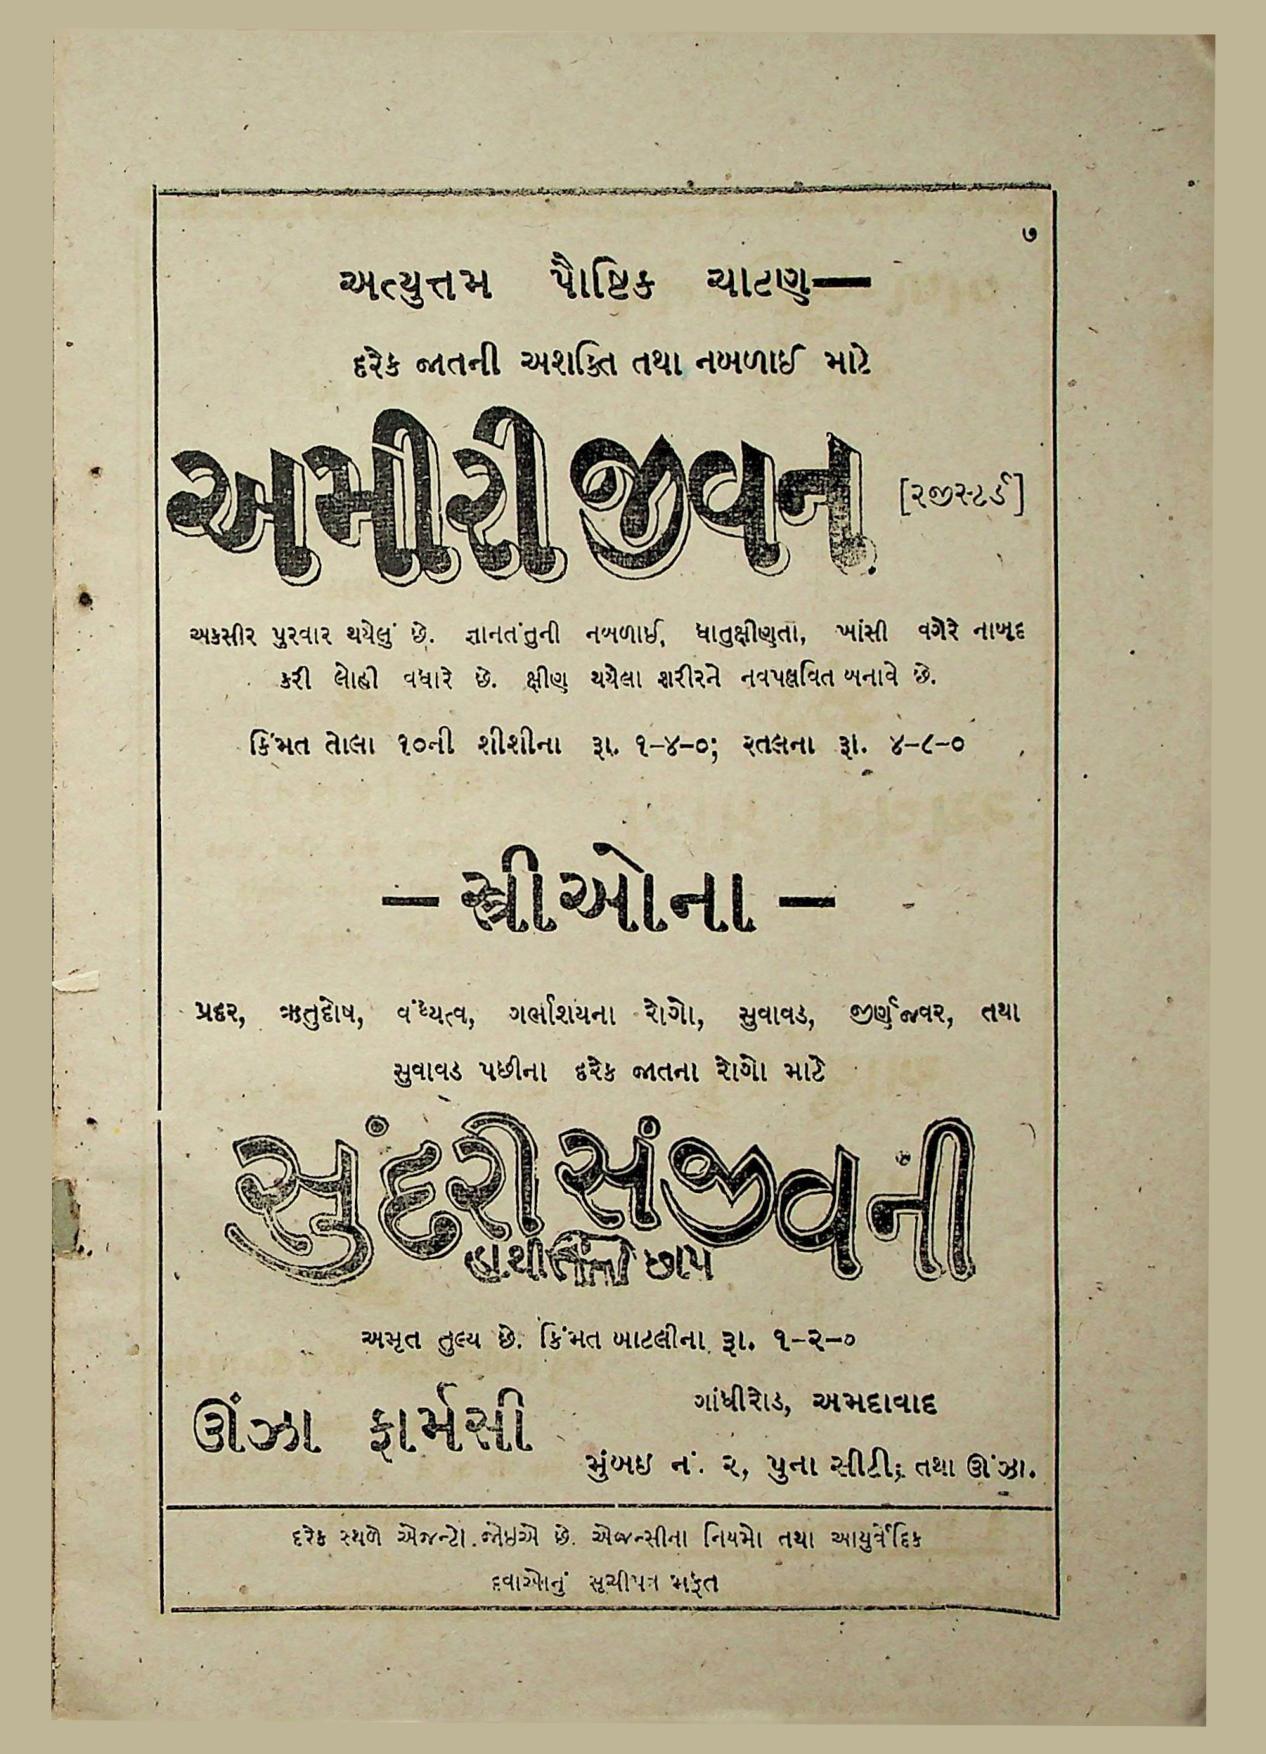 ૭
અત્યુત્તમ પૌષ્ટિક ચાટણ—
દરેક જાતની અશક્તિ તથા નબળાઈ માટે
અમીરી જીવન [રજીસ્ટર્ડ]
અકસીર પુરવાર થયેલું છે. જ્ઞાનતંતુની નબળાઈ, ધાતુક્ષીણતા, ખાંસી વગેરે નાબૂદ
કરી લોહી વધારે છે. ક્ષીણ થયેલા શરીરને નવપલ્લવિત બનાવે છે.
કિંમત તોલા ૧૦ની શીશીના રૂા. ૧-૪-૦; રતલના રૂા. ૪-૮-૦
— સ્ત્રીઓના —
પ્રદર, ઋતુદોષ, વંધ્યત્વ, ગર્ભાશયના રોગો, સુવાવડ, જીર્ણજ્વર, તથા
સુવાવડ પછીના દરેક જાતના રોગો માટે
સુંદરી સંજીવની
હાથી છાપ
અમૃત તુલ્ય છે. કિંમત બાટલીના રૂા. ૧-૨-૦
ઊંઝા ફાર્મસી
ગાંધીરોડ, અમદાવાદ
મુંબઇ નં. ૨, પુના સીટી; તથા ઊંઝા.
દરેક સ્થળે એજન્ટો જોઇએ છે. એજન્સીના નિયમો તથા આયુર્વેદિક
દવાઓનું સૂચીપત્ર મફત